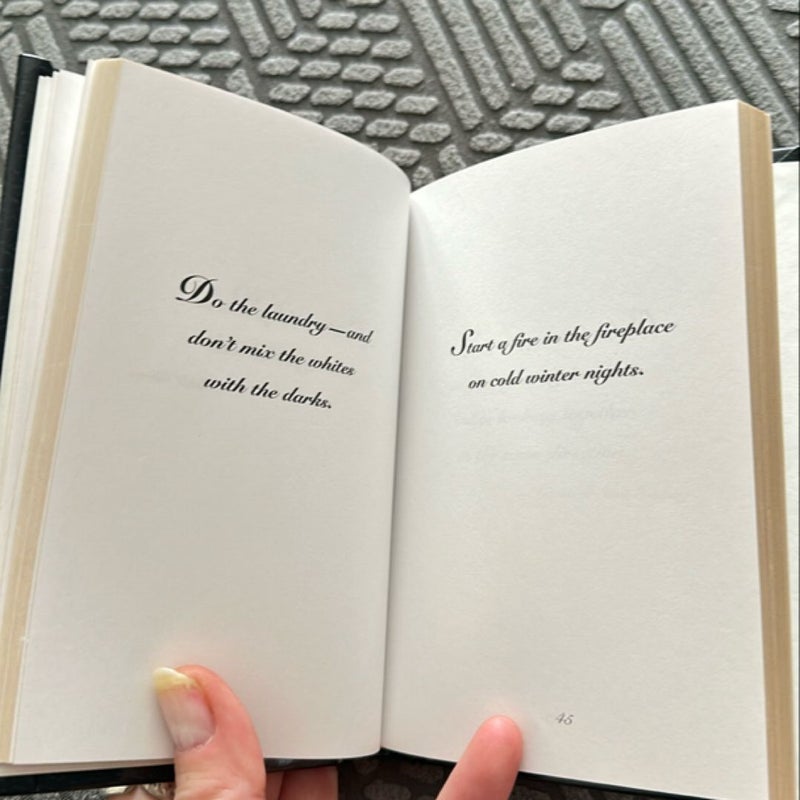 Do the laundry—and
don't mix the whites
with the darks.
Start a fire in the fireplace
on cold winter nights.
45